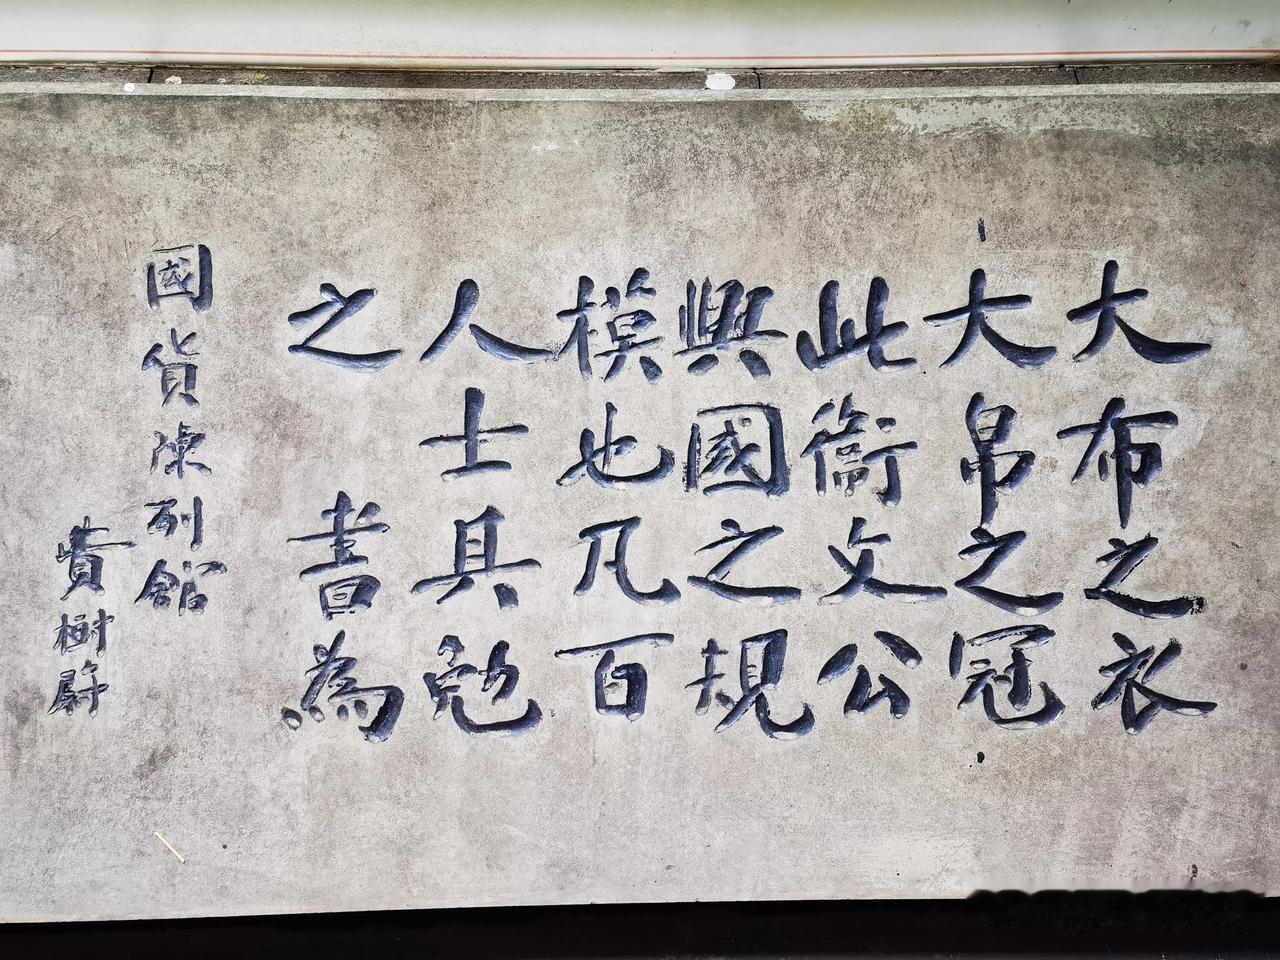 大布之衣
大帛之冠
此衞文公
興國之規
模也凡百
人士具勉
之
書為
國貨陳列館
費樹蔚